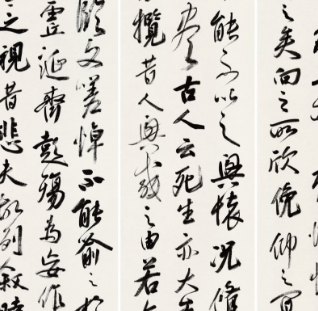 之矣向之所欣俛仰之間
能不以之興懷況脩
盡古人云死生亦大
攬昔人興感之由若
臨文嗟悼不能喻之於
虛誕齊彭殤為妄作
之視昔悲夫故列敘時